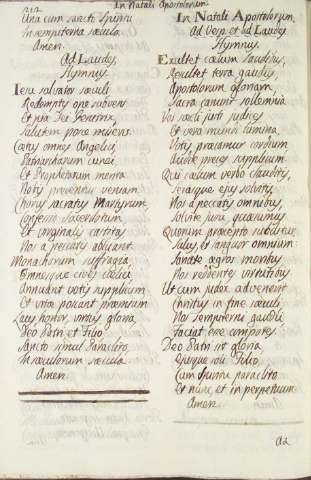 In Natali Apostolorum.
212
Una cum sancto Spiritu
In sempiterna sæcula.
Amen.
Ad Laudes,
Hymnus.
Iesu salvator sæculi
Redemptis ope subveni
Et pia Dei Genitrix,
Salutem posce miseris.
Cœtus omnes Angelici,
Patriarcharum cunei,
Et Prophetarum merita
Nobis precentur veniam.
Chorus sacratus Martyrum,
Confessio Sacerdotum
Et virginalis castitas
Nos a peccatis abluant.
Monachorum suffragia,
Omnesque cives cœlici
Annuant votis supplicum
Et vitæ poscant præmium
Laus, honor, virtus, gloria
Deo Patri et Filio
Sancto simul Paraclito,
In sæculorum sæcula
Amen.
In Natali Apostolorum
Ad Vesp. et ad Laudes
Hymnus.
Exultet cœlum laudibus,
Resultet terra gaudiis,
Apostolorum gloriam,
Sacra canunt sollemnia.
Vos sæcli justi judices
Et vera mundi lumina,
Votis precamur cordium
Audite preces supplicum
Qui cœlum verbo clauditis,
Serasque ejus solvitis,
Nos a peccatis omnibus,
Solvite jussu quæsumus
Quorum præcepto subditur
Salus, et languor omnium:
Sanate ægros moribus
Nos reddentes virtutibus
Ut cum judex advenerit
Christus in fine sæculi
Nos sempiterni gaudii
Faciat esse compotes
Deo Patri sit gloria
Ejusque soli Filio
Cum Spiritu paraclito
Et nunc, et in perpetuum
Amen.
ad